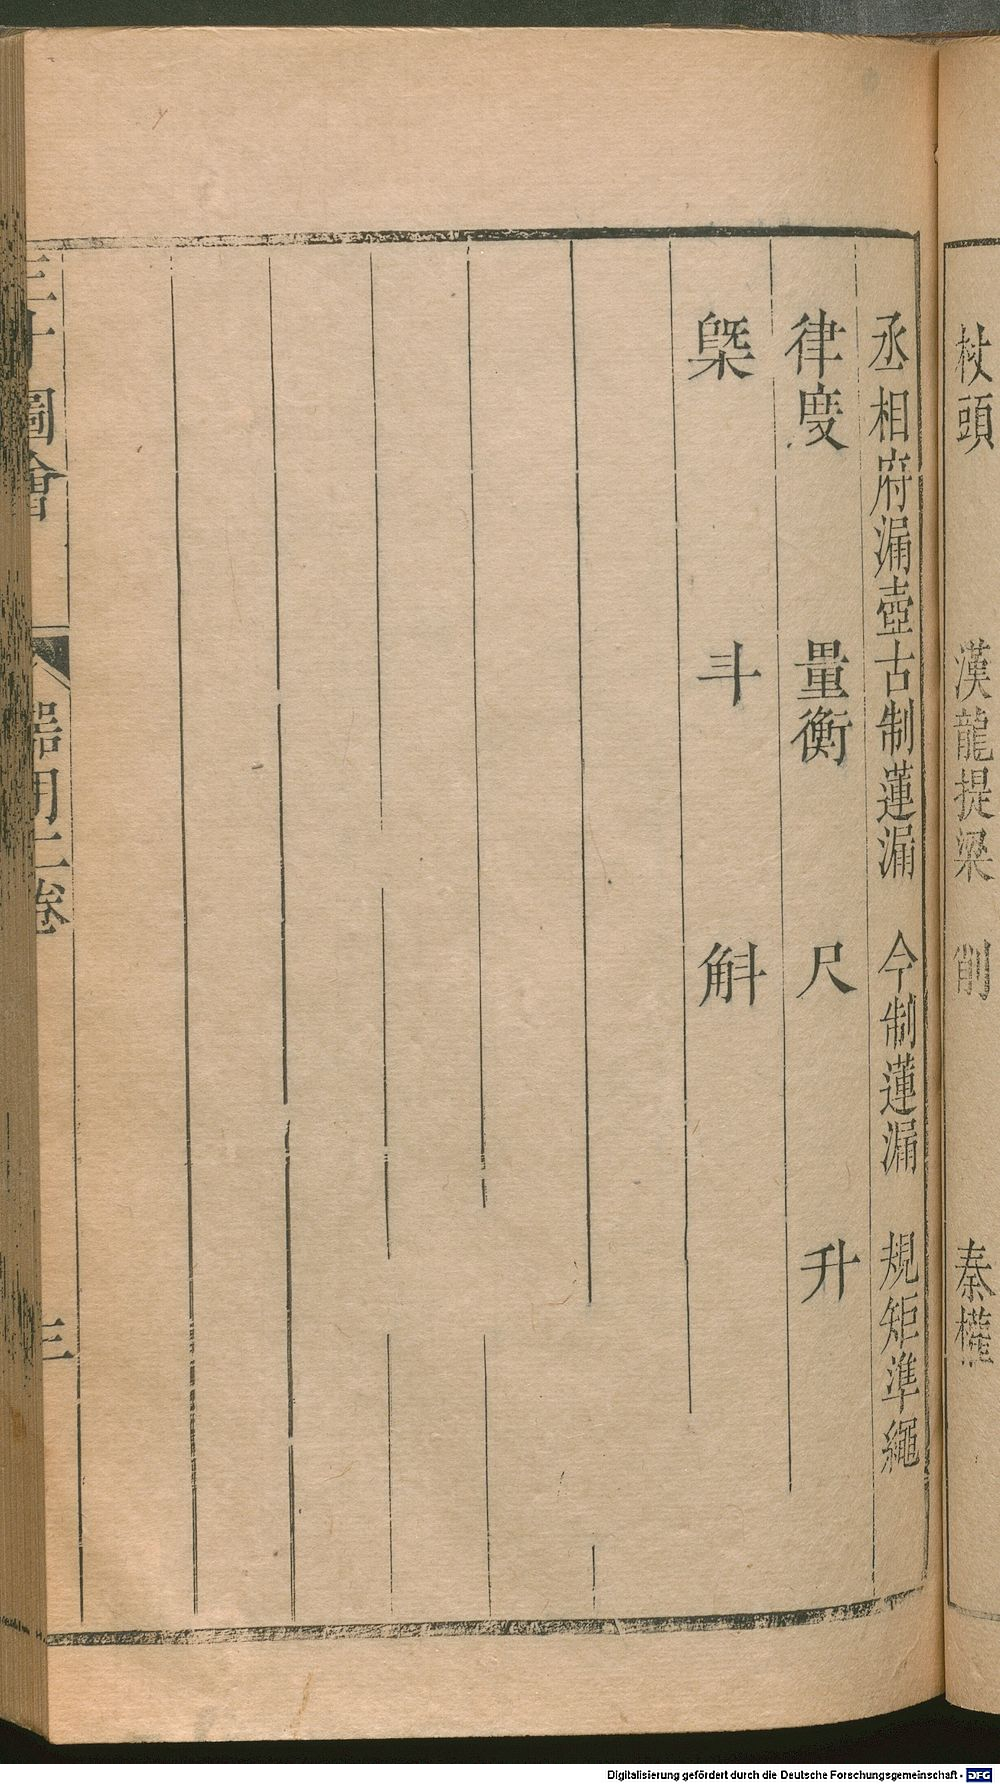 杖頭　漢龍提梁　削　秦權
丞相府漏壺古制蓮漏　今制蓮漏　規矩準繩
律度　量衡　尺　升
槩　斗　斛
三才圖會　器用二卷　三
Digitalisierung gefördert durch die Deutsche Forschungsgemeinschaft - DFG